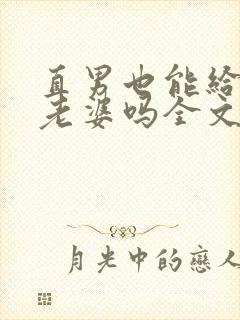 直男也能給
老婆吗全文
月光中的戀人